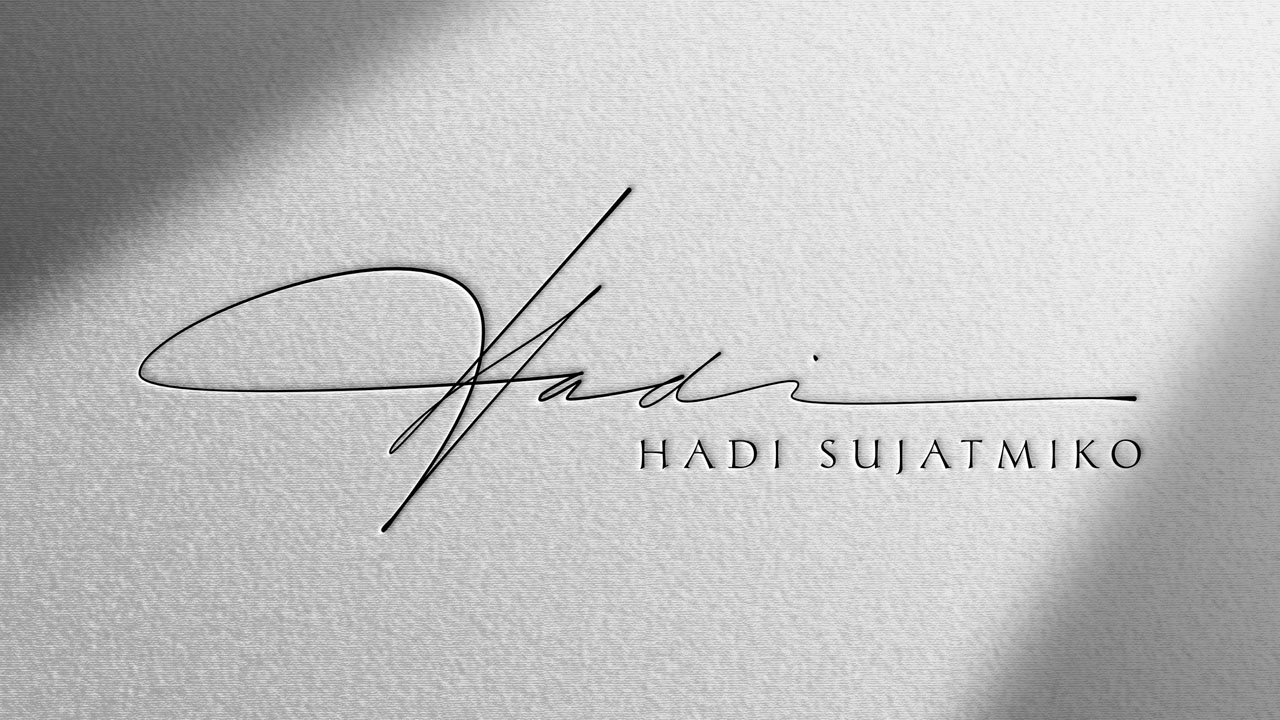 Hadi
HADI SUJATMIKO